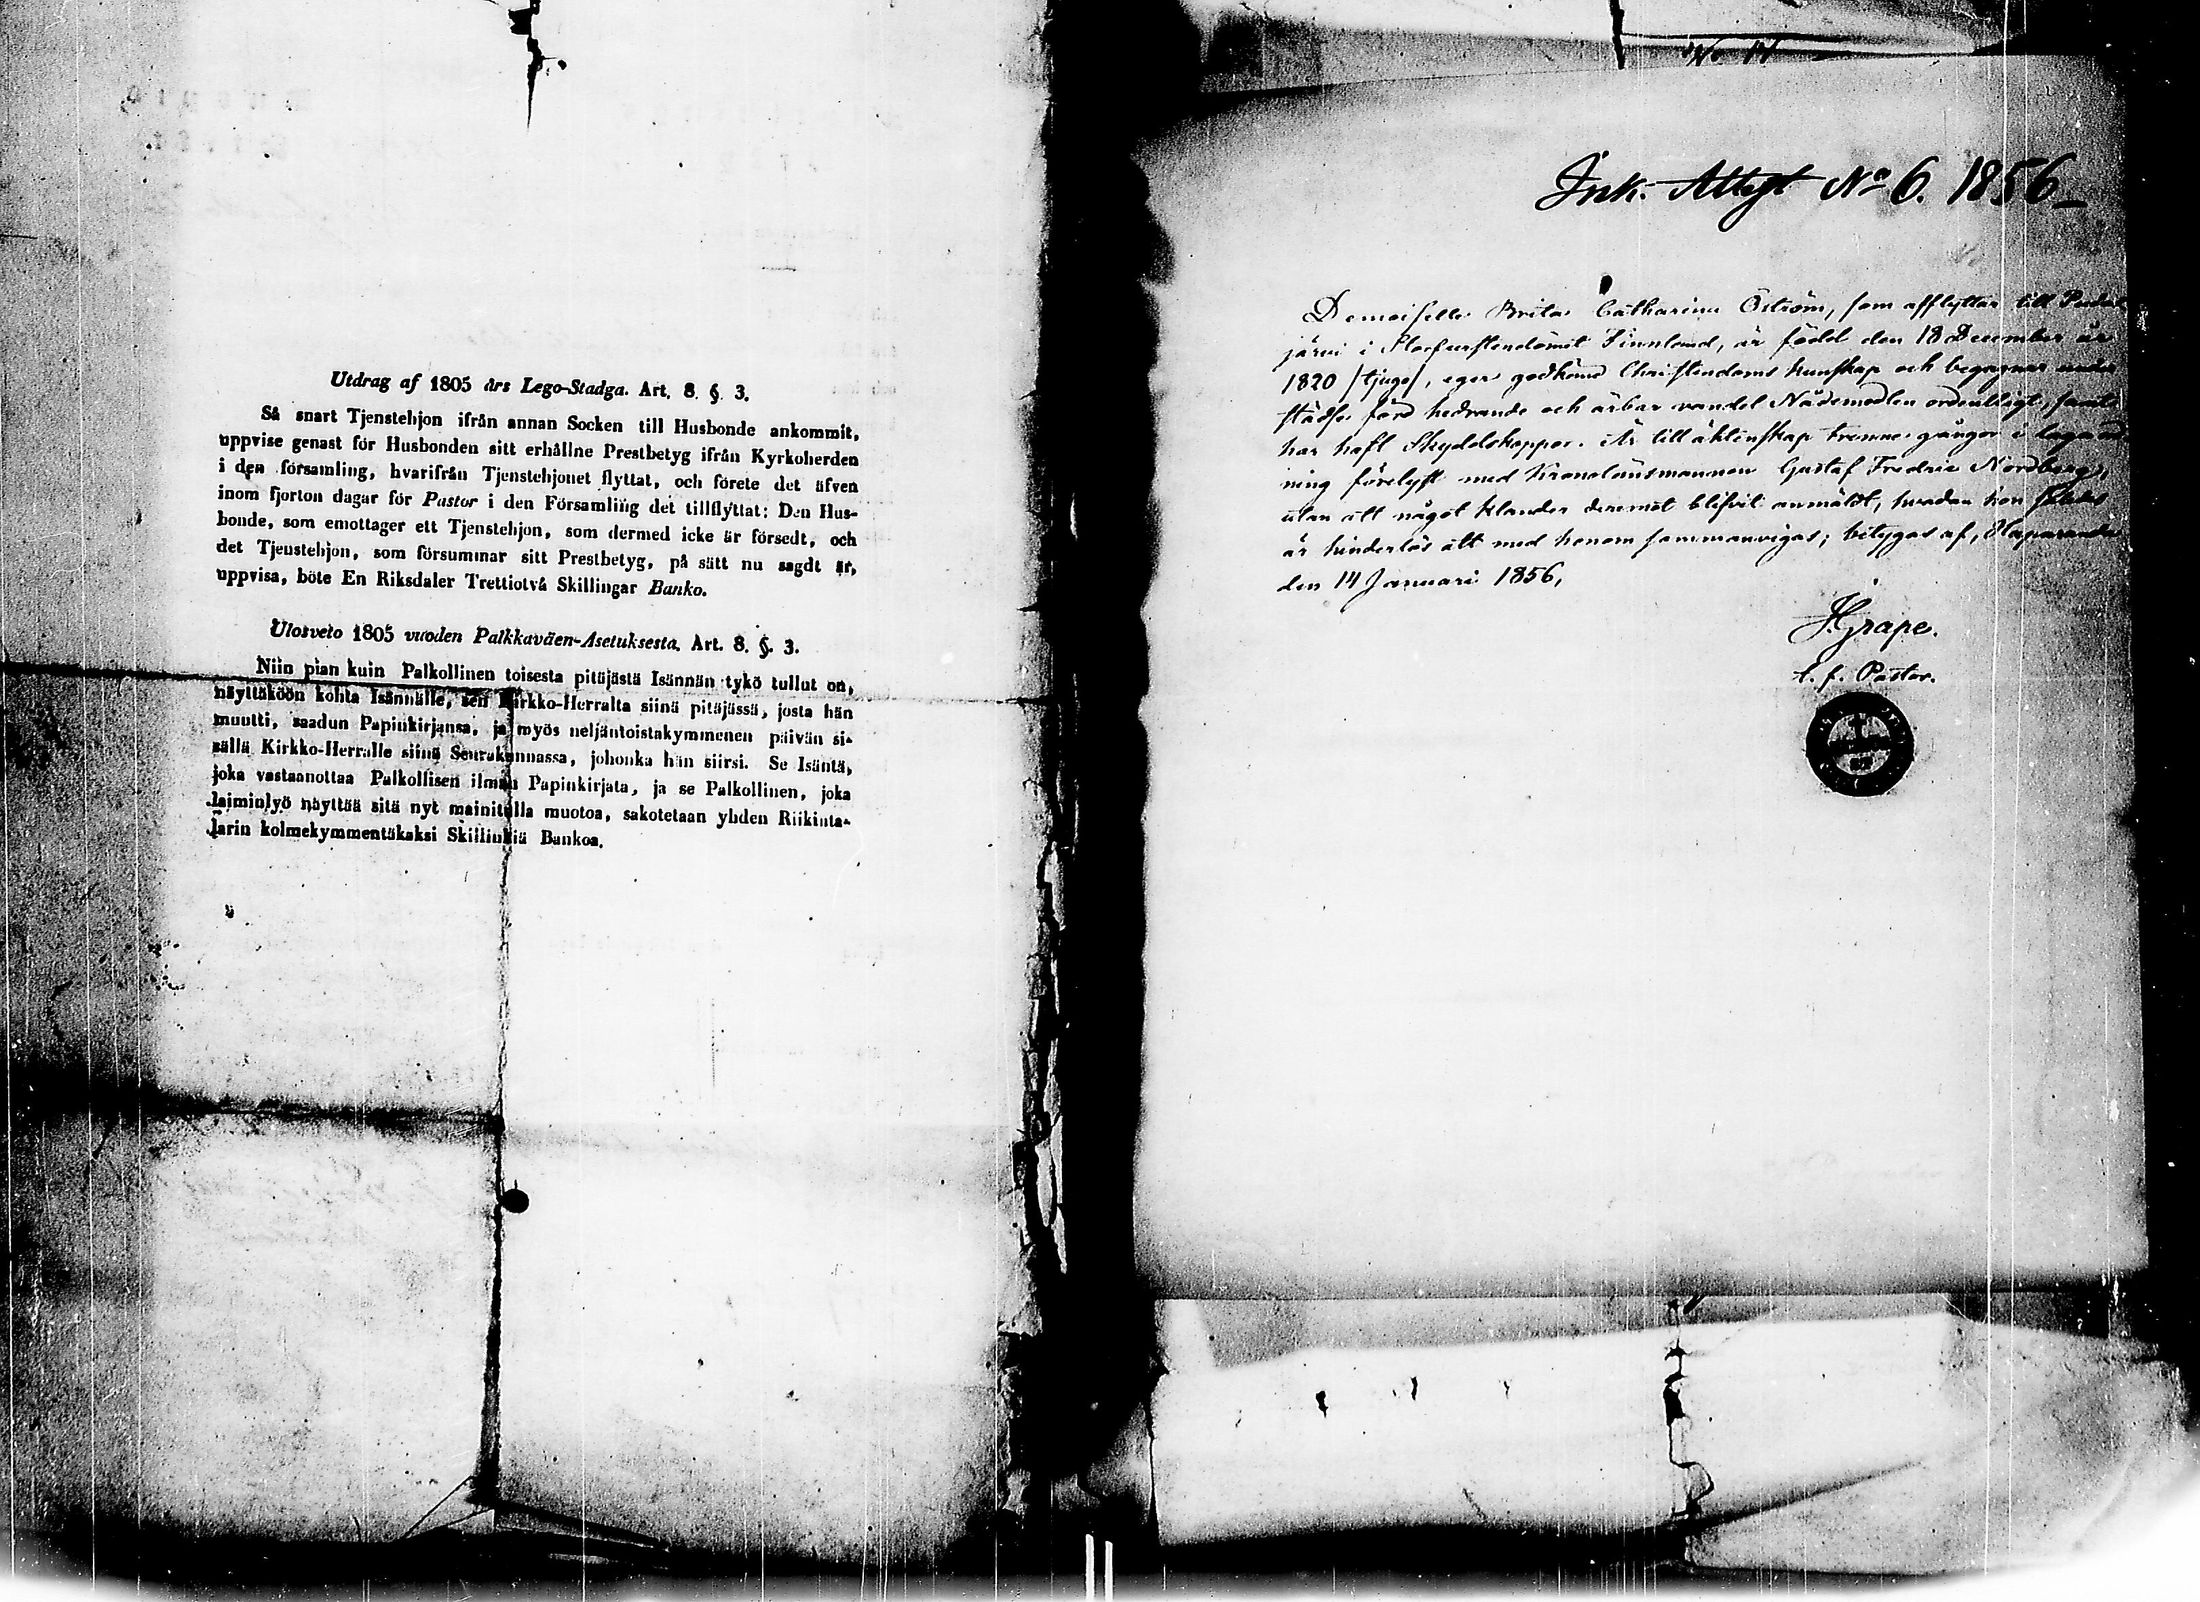 Utdrag af 1805 års Lego-Stadga. Art. 8. §. 3.
Så snart Tjenstehjon ifrån annan Socken till Husbonde ankommit,
uppvise genast för Husbonden sitt erhållne Prestbetyg ifrån Kyrkoherden
i den församling, hvarifrån Tjenstehjonet flyttat, och förete det äfven
inom fjorton dagar för Pastor i den Församling det tillflyttat: Den Hus-
bonde, som emottager ett Tjenstehjon, som dermed icke är försedt, och
det Tjenstehjon, som försummar sitt Prestbetyg, på sätt nu sagdt är,
uppvisa, böte En Riksdaler Trettiotvå Skillingar Banko.
Ulosveto 1805 vuoden Palkkaväen-Asetuksesta. Art. 8. §. 3.
Niin pian kuin Palkollinen toisesta pitäjästä Isännän tykö tullut on,
näyttäköön kohta Isännälle, sen Kirkko-Herralta siinä pitäjässä, josta hän
muutti, saadun Papinkirjansa, ja myös neljäntoistakymmenen päivän si-
sällä Kirkko-Herralle siinä Seurakunnassa, johonka hän siirsi. Se Isäntä,
joka vastaanottaa Palkollisen ilman Papinkirjata, ja se Palkollinen, joka
laiminlyö näyttää sitä nyt mainitulla muotoa, sakotetaan yhden Riikinta-
larin kolmekymmentäkaksi Skillinkiä Bankoa.
No 14
Ink. Attest No 6. 1856
Demoiselle Brita Catharina Öström, som afflyttar till Pudas
järvi i Storfurstendömet Finnland, är född den 18 December år
1820 /tjugo/, eger godkänd Christendoms kunskap och begagnar under
städse förd hedrande och ärbar vandel Nådemedlen ordentligt, samt
har haft Skyddskoppor. Är till äktenskap trenne gånger i laga ord
ning förelyst med Kronolänsmannen Gustaf Fredric Nordberg,
utan att något klander deremot blifvit anmäldt, hvadan hon
är hinderlös att med honom sammanvigas; betygas af, Haparanda
den 14 Januari 1856,
J. Grape.
t. f. Pastor.